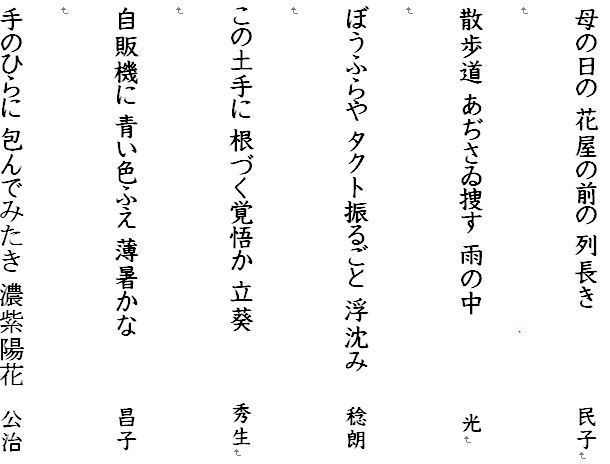 母の日の 花屋の前の 列長き 民子
散歩道 あぢさゐ捜す 雨の中 光
ぼうふらや タクト振るごと 浮沈み 稔朗
この土手に 根づく覚悟か 立葵 秀生
自販機に 青い色ふえ 薄暑かな 昌子
手のひらに 包んでみたき 濃紫陽花 公治